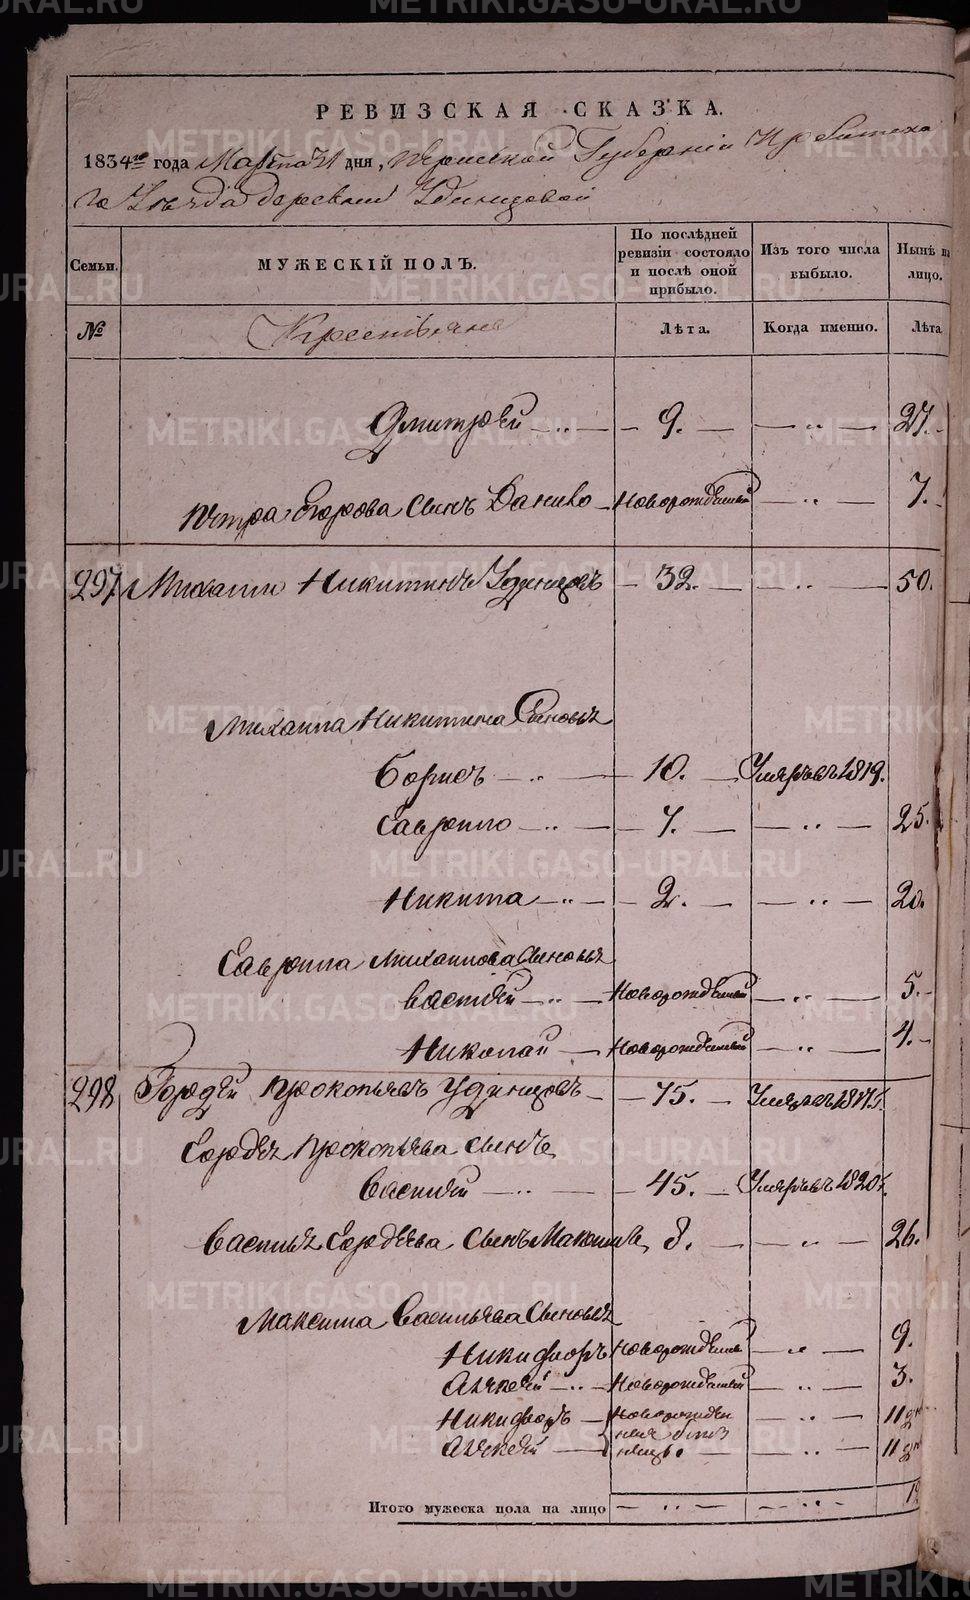 РЕВИЗСКАЯ СКАЗКА.
1834го года Марта 21 дня, Пермской Губерніи Ирбитска
го Уѣзда деревни Удинцовой
Семьи.
МУЖЕСКІЙ ПОЛЪ.
По послѣдней ревизіи состояло и послѣ оной прибыло.
Изъ того числа выбыло.
Нынѣ на лицо.
№ Крестьяне Лѣта. Когда именно. Лѣта
Дмитрѣй — 9. — 27.
Петра Егорова сынъ Данило — Новорожденный — 7.
297 Михаило Никитинъ Удинцовъ — 32. — 50.
Михаила Никитина Сыновья
Борисъ — 10. — Умеръ въ 1819.
Гаврило — 7. — 25.
Никита — 2. — 20.
Гаврила Михаилова Сыновья
Василѣй — Новорожденный — 5.
Николай — Новорожденный — 4.
298 Гордѣй Прокопьевъ Удинцовъ — 75. — Умеръ въ
Гордѣя Прокопьева сынъ
Василѣй — 45. — Умеръ въ 1820
Василья Гордѣева Сынъ Максимъ 8. — 26.
Максима Васильева Сыновья
Никифоръ Новорожденный — 9.
Алексѣй — Новорожденный — 3.
Никифоръ — Новорожден — 11 дн
Алексѣй — ные близ нецы. — 11 дн
Итого мужеска пола на лицо
METRIKI.GASO-URAL.RU